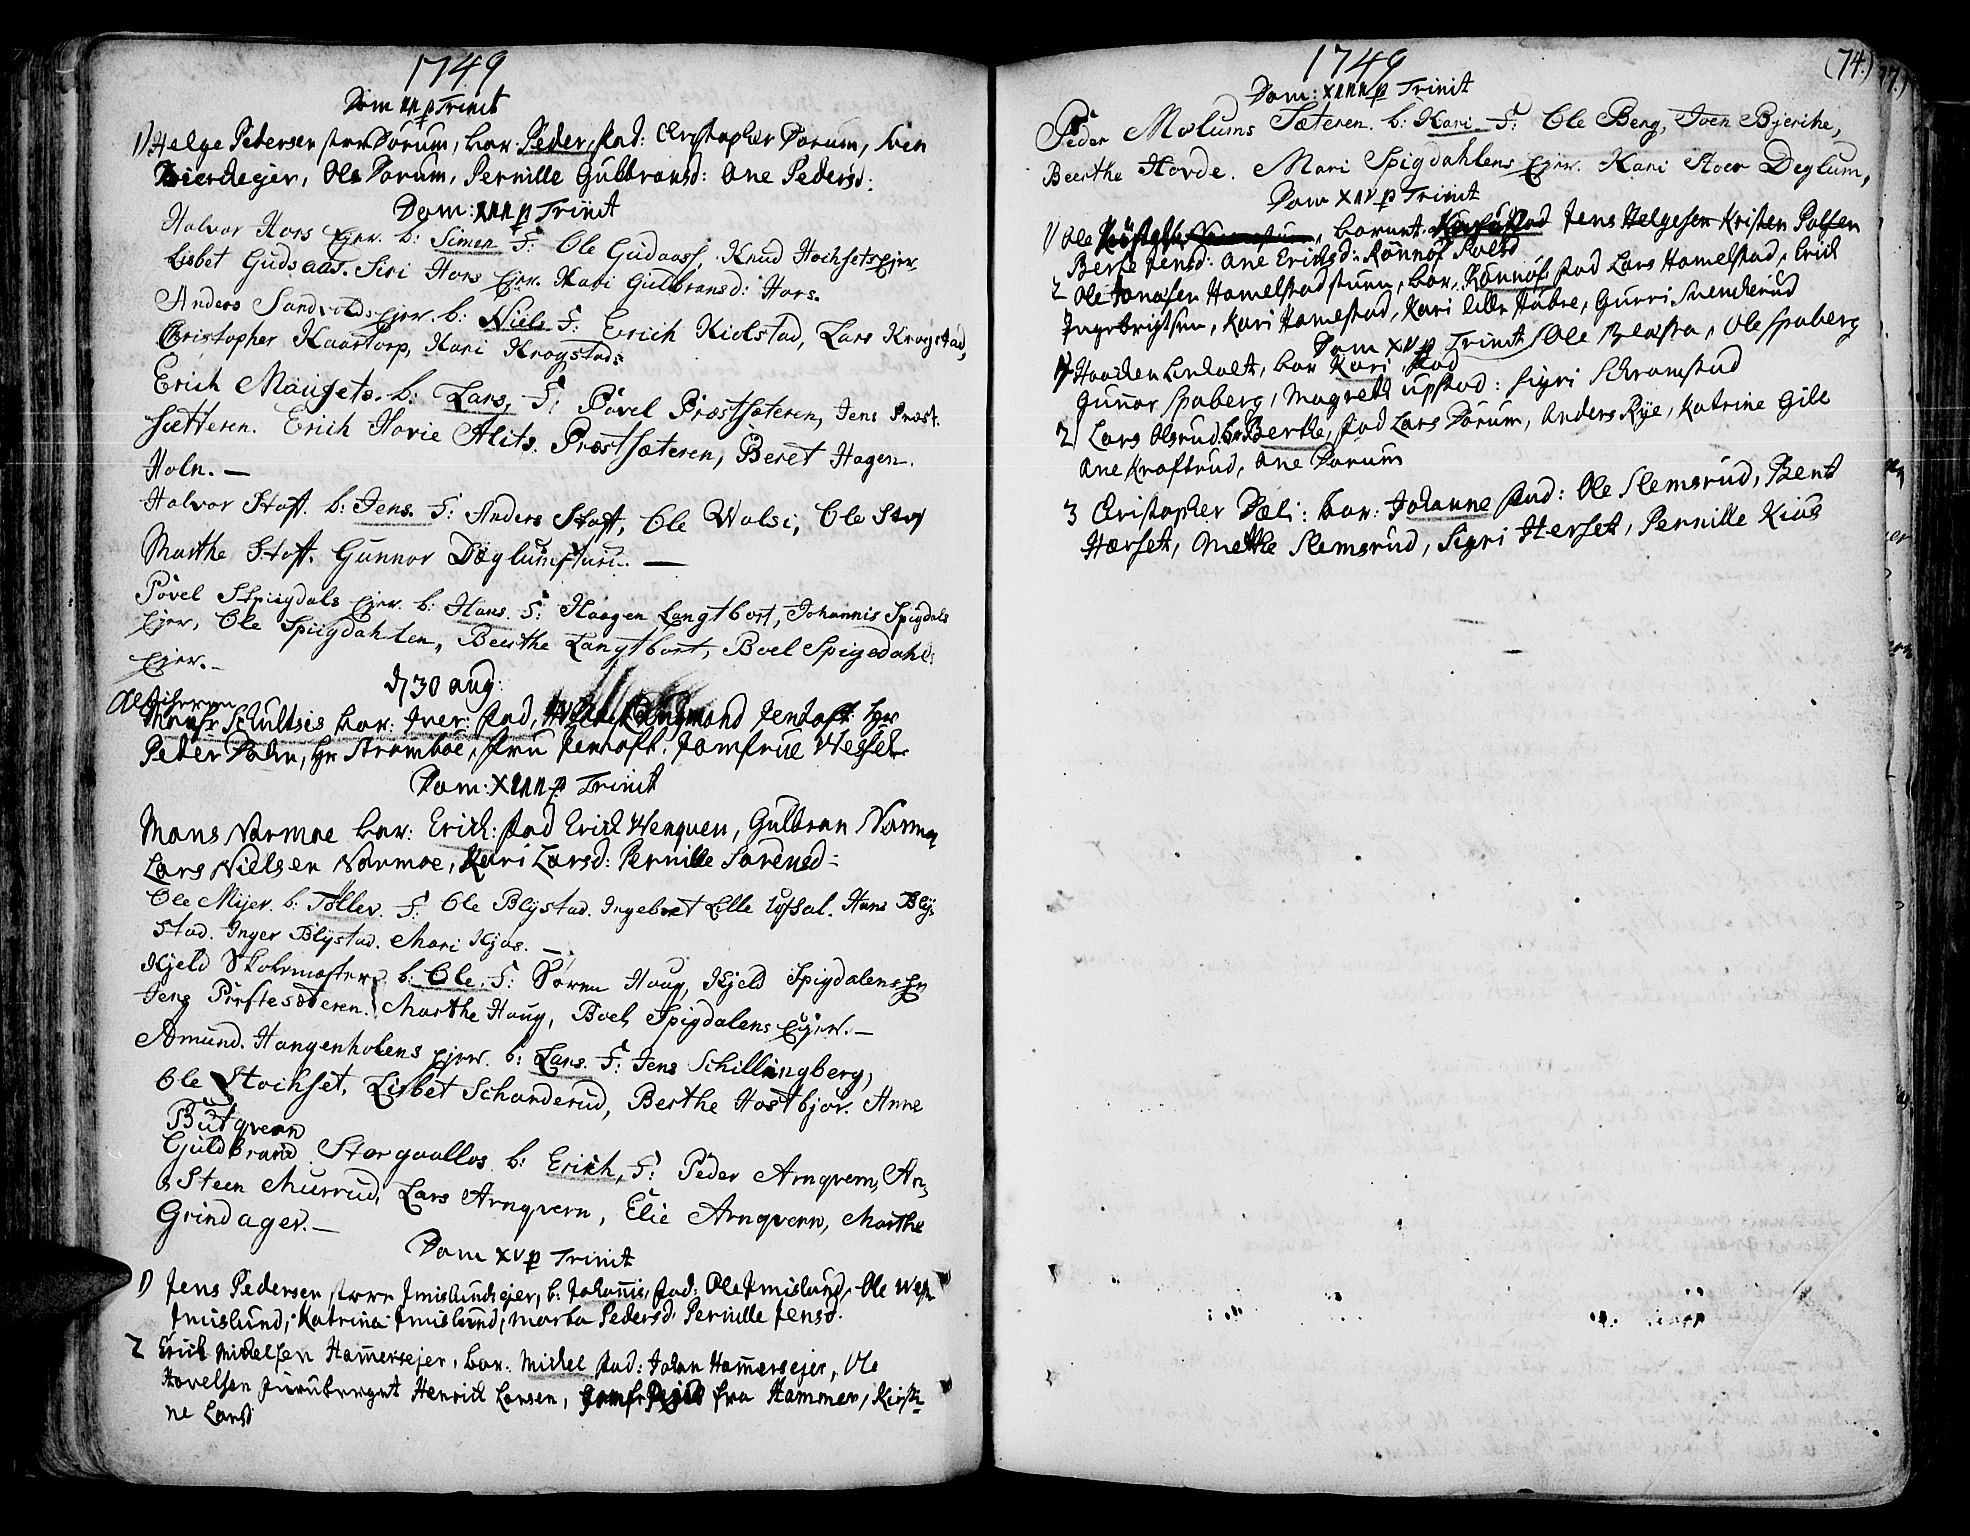 1749
Dom XII p Trinit
1) Helge Pedersen store Dorum, bar: Peder, fad: Christopher Dorum, Sven
Bierkeejer, Ole Dorum, Pernille Gulbransd: Ane Pedersd:
Dom: XIII p Trinit
Halvor Hors Ejer. b: Simen F: Ole Gudaass, Knud Hochsets Ejer,
Lisbet Gudsaas. Siri Hors Ejer. Kari Gulbransd: Hors.
Anders Sandvolds Ejer. b: Niels F: Erich Kielstad, Lars Krogstad,
Christopher Kaartorp, Kari Krogstads
Erich Maugets. b: Lars, F: Povel Præstsæteren, Jens Præst.
sætteren. Erich Hovie Alits. Præstsæteren, Beret Hagen.
Holn. —
Halvor Stoft. b: Jens. F: Anders Stoft, Ole Wolsi, Ole Stoft
Marthe Stoft. Gunnor Døglumstun. —
Povel Spigdals Ejer. b: Hans. F: Haagen Langtbort, Johannis Spigdals
Ejer, Ole Spigdahlen, Beerthe Langtbort, Boel Spigedahls
Ejer. —
d 30 aug:
Monsr Schultsis bar: Iver: fad, Jentoft Hr
Peder Dahn, Hr Stromboe, fru Jentoft. Jomfrue Wessel
Dom: XIIII p Trinit
Mons Narmoe bar: Erich: fad Erich Wenquen, Gulbran Narmoe
Lars Nielsen Narmoe, Kari Larsd: Pernille Sorensd:
Ole Mijer. b: Toller. F: Ole Blystad. Ingebret Lille Ufsal. Hans Bly,
stad. Inger Blystad. Mari Kjos. —
Kjeld Skolemester b: Ole. F: Søren Haug, Kjeld Spigdalens Ejer
Jens Præstesæteren. Marthe Haug, Boel Spigdalens Ejer. —
Amund. Hangenholens Ejer. b: Lars. F: Jens Schillingberg,
Ole Hochset, Lisbet Schonderud, Berthe Hostbjor. Anne
Butqvern
Guldbrand Storgaallos b: Erich, F: Peder Arnqvern, An,
Steen Murrud, Lars Arnqvern, Elie Arnqvern, Marthe
Grindager. —
Dom XV p Trinit
1) Jens Pedersen store Imislundsejer, b: Johannis, fad: Ole Imislund, Ole West
Imislund, Katrina Imislund, marta Pedersd. Pernille Jensd.
2 Erich Michelsen Hammersejer, bar. Michel fad: Johan Hammersejer, Ole
Hovelsen Henrich Larsen, fra Hammer, Kirsti
ne Larsd
(74.)
1749
Dom: XIIII p Trinit
Peder Molums Sæteren. b: Kari F: Ole Berg, Iven Bjerche,
Beerthe Hovde. Mari Spigdahlens Ejer. Kari Stoer Deglum,
Dom XIV p Trinit
1) Ole barnet fad Jens Helgesen Kristen Polsen
Berte Jensd: Ane Erichsd: Ronnof Polsd
2 Ole Jonasen Hamelstadstuen, bar, Ronnof fad Lars Hamelstad, Erich
Ingebrigtsen, Kari Hamestad, Kari lille Hubre, Gurri Svenkerud
Dom XV p Trinit Ole Blæstra, Ole Spaberg
1) Haachen Linholt, bar Kari, fad
Gunnor Spaberg, Magrete upstad: Sigri Schramstad
2) Lars Olsrud bar Berthe, fad Lars Dorum, Anders Rye, Katrine Gile
Ane Kraftrud, Ane Dorum
3 Christopher Dæli: bar: Johanne fad: Ole Slemsrud, Bent
Hærset, Mette Slemsrud, Sigri Herset, Pernille Kiøs